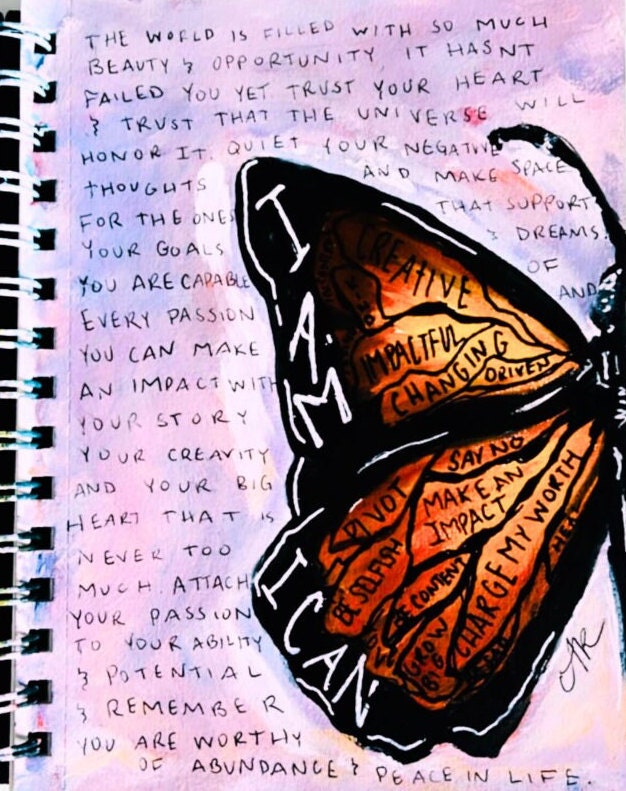 THE WORLD IS FILLED WITH SO MUCH
BEAUTY & OPPORTUNITY IT HASNT
FAILED YOU YET TRUST YOUR HEART
& TRUST THAT THE UNIVERSE WILL
HONOR IT. QUIET YOUR NEGATIVE
THOUGHTS AND MAKE SPACE
FOR THE ONES THAT SUPPORT
YOUR GOALS & DREAMS.
YOU ARE CAPABLE OF
EVERY PASSION AND
YOU CAN MAKE
AN IMPACT WITH
YOUR STORY
YOUR CREAVITY
AND YOUR BIG
HEART THAT IS
NEVER TOO
MUCH. ATTACH
YOUR PASSION
TO YOUR ABILITY
& POTENTIAL
& REMEMBER
YOU ARE WORTHY
OF ABUNDANCE & PEACE IN LIFE.
I AM
CREATIVE
IMPACTFUL
CHANGING
DRIVEN
I CAN
SAY NO
PIVOT
MAKE AN
IMPACT
BE SELFISH
BE CONTENT
CHARGE MY WORTH
GROW
BIG
AR